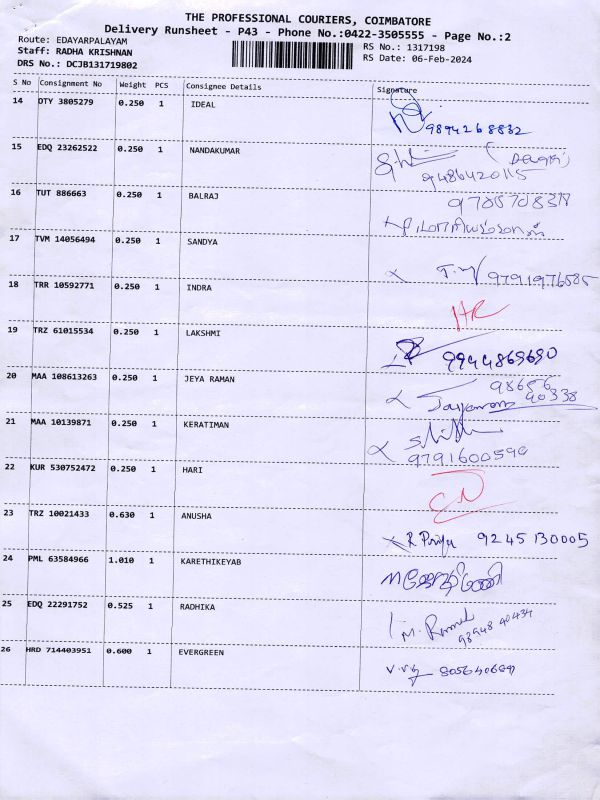 THE PROFESSIONAL COURIERS, COIMBATORE
Delivery Runsheet - P43 - Phone No.:0422-3505555 - Page No.:2
Route: EDAYARPALAYAM
RS No.: 1317198
Staff: RADHA KRISHNAN
RS Date: 06-Feb-2024
DRS No.: DCJB131719802
S No Consignment No Weight PCS Consignee Details Signature
14 OTY 3805279 0.250 1 IDEAL
9894268832
15 EDQ 23262522 0.250 1 NANDAKUMAR
9486420115
16 TUT 886663 0.250 1 BALRAJ
17 TVM 14056494 0.250 1 SANDYA
9791976585
18 TRR 10592771 0.250 1 INDRA
19 TRZ 61015534 0.250 1 LAKSHMI
9944869690
20 MAA 108613263 0.250 1 JEYA RAMAN
98656
90338
21 MAA 10139871 0.250 1 KERATIMAN
22 KUR 530752472 0.250 1 HARI
23 TRZ 10021433 0.630 1 ANUSHA
R Priya 9245130005
24 PML 63584966 1.010 1 KARETHIKEYAB
25 EDQ 22291752 0.525 1 RADHIKA
26 HRD 714403951 0.600 1 EVERGREEN